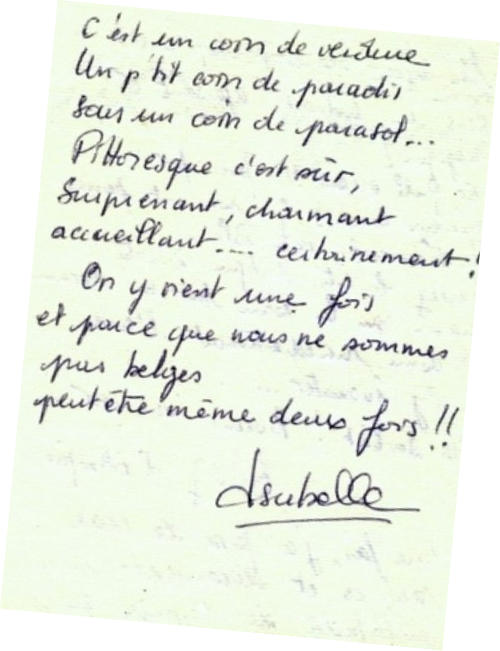 C'est un coin de verdure
Un p'tit coin de paradis
Sous un coin de parasol...
Pittoresque c'est sûr,
Surprenant, charmant
accueillant.... certainement!
On y vient une fois
et parce que nous ne sommes
pas belges
peut être même deux fois!!
Isabelle